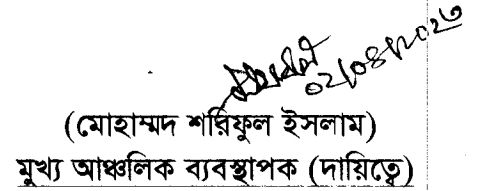 ০২/০৪/২০২৩
(মোহাম্মদ শরিফুল ইসলাম)
মুখ্য আঞ্চলিক ব্যবস্থাপক (দায়িত্বে)